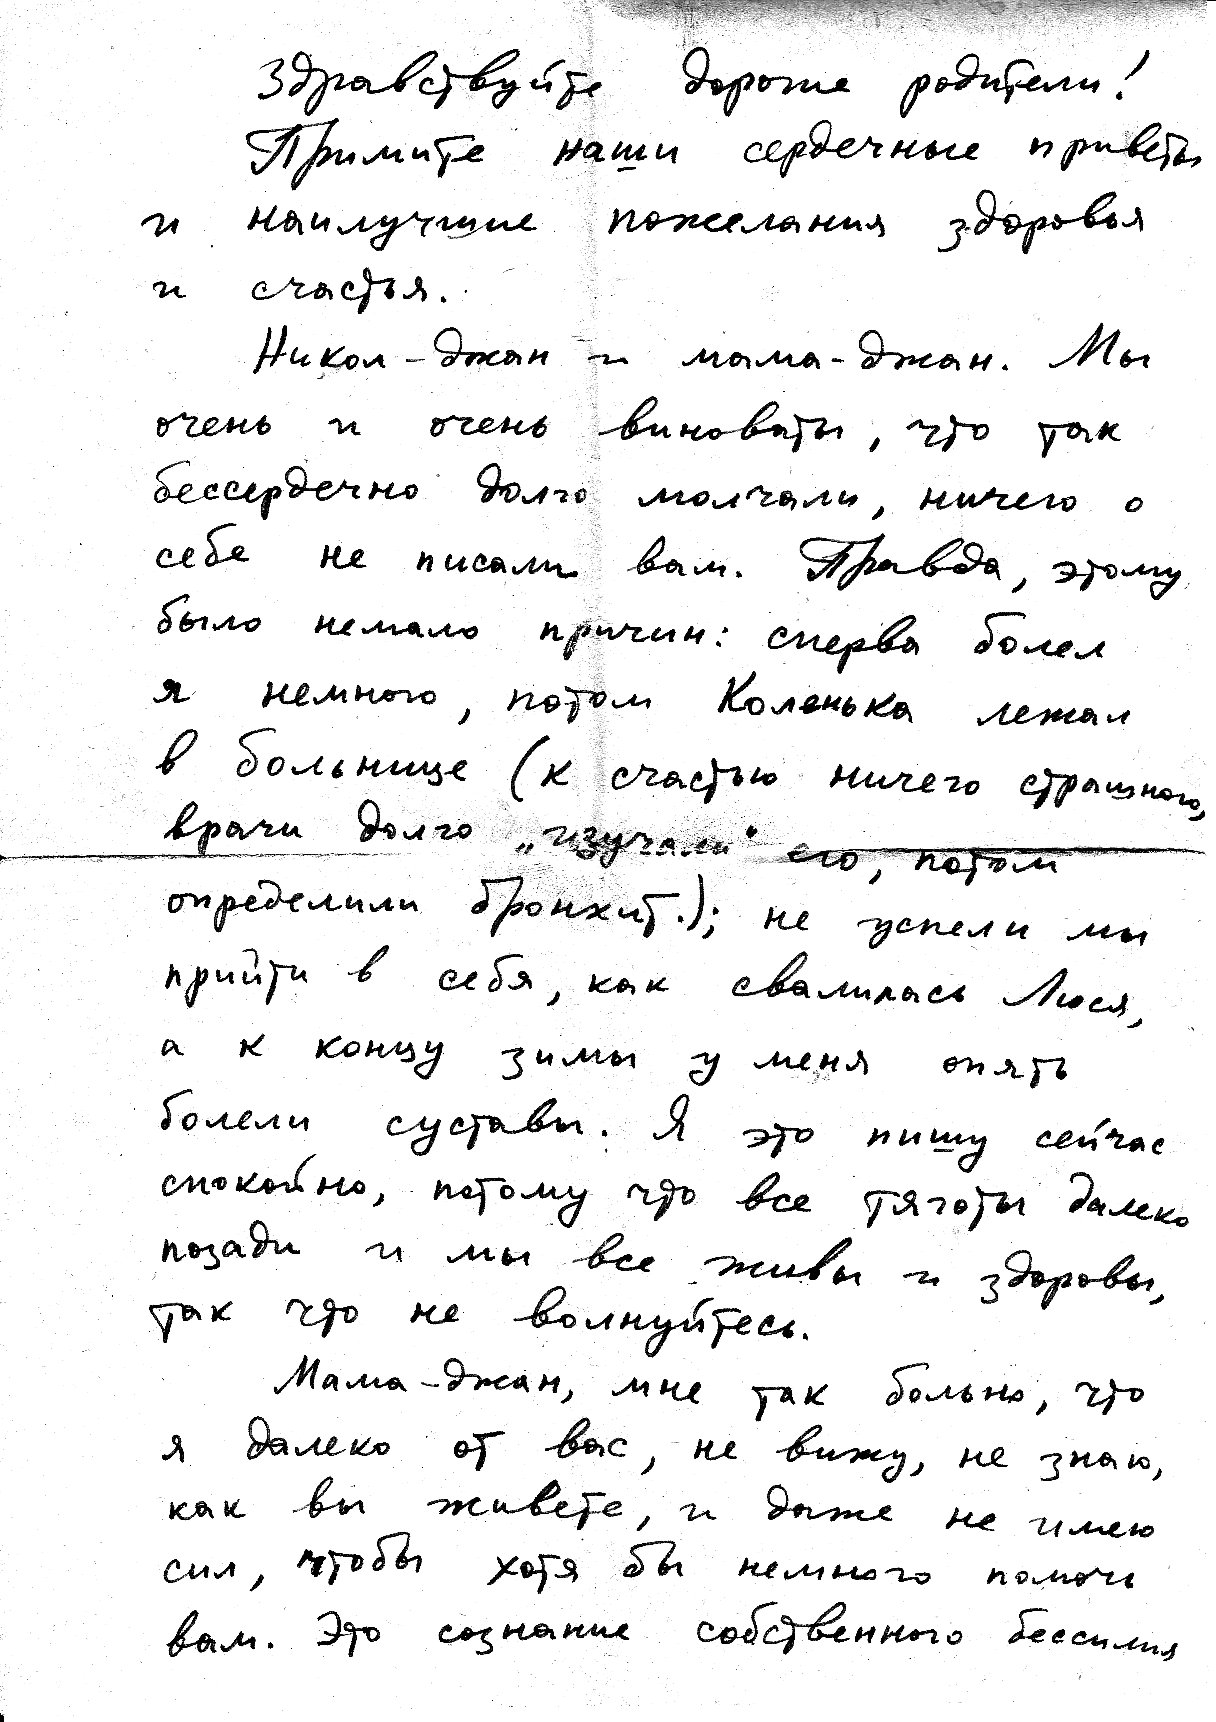 Здравствуйте дорогие родители!
Примите наши сердечные приветы
и наилучшие пожелания здоровья
и счастья.
Никол-джан и мама-джан. Мы
очень и очень виноваты, что так
бессердечно долго молчали, ничего о
себе не писали вам. Правда, этому
было немало причин: сперва болел
я немного, потом Коленька лежал
в больнице (к счастью ничего страшного,
врачи долго „изучали“ его, потом
определили бронхит.); не успели мы
прийти в себя, как свалилась Люся,
а к концу зимы у меня опять
болели суставы. Я это пишу сейчас
спокойно, потому что все тяготы далеко
позади и мы все живы и здоровы,
так что не волнуйтесь.
Мама-джан, мне так больно, что
я далеко от вас, не вижу, не знаю,
как вы живете, и даже не имею
сил, чтобы хотя бы немного помочь
вам. Это сознание собственного бессилия